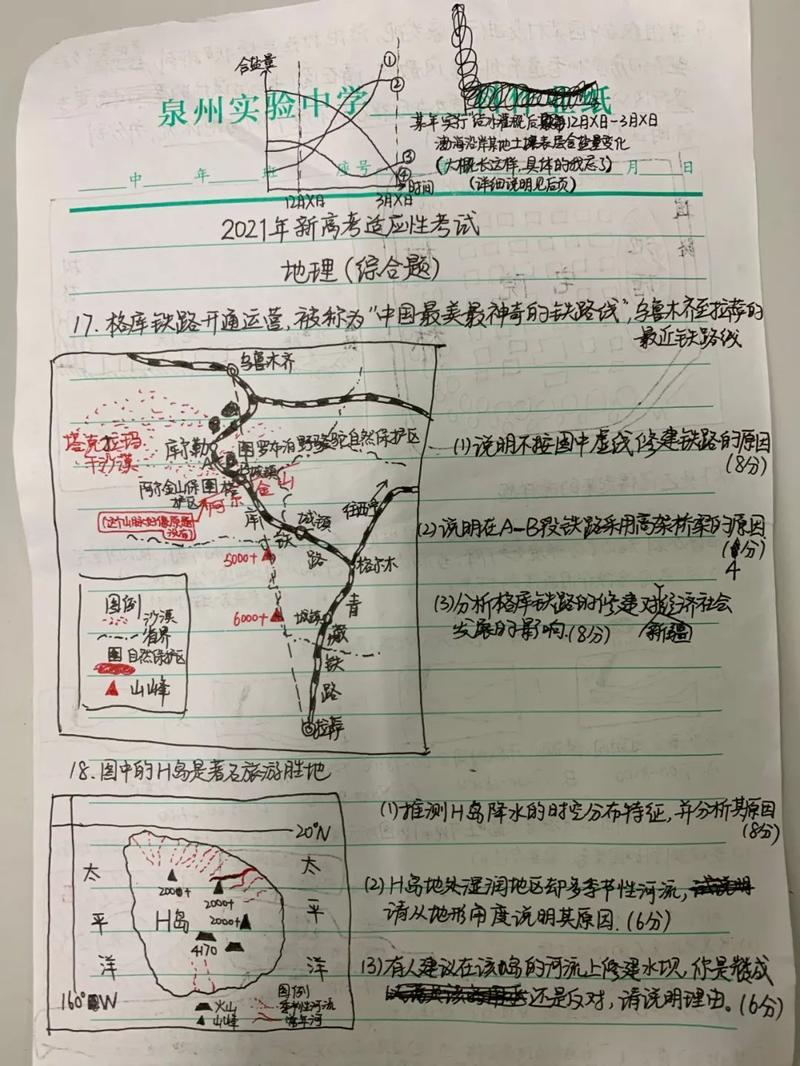 含盐量
①
②
③
④
时间
12月X日
3月X日
泉州实验中学
纸
某年实行"咸水灌溉后 12月X日-3月X日
渤海沿岸某地土壤表层含盐量变化
(大概长这样,具体的我忘了)
(详细说明见后页)
中 年 班 座号 月 日
2021年新高考适应性考试
地理(综合题)
17.格库铁路开通运营,被称为"中国最美最神奇的铁路线",乌鲁木齐至拉萨的
最近铁路线
乌鲁木齐
塔克拉玛
干沙漠
库尔勒
图罗布泊野骆驼自然保护区
A
B
城镇
阿尔金山保
护区
图
格
阿尔金山
(这个山脉好像原题
没有)
库
城镇
往西宁
铁
路
格尔木
5000+
6000+
城镇
青
藏
铁
路
拉萨
图例
沙漠
省界
图 自然保护区
山峰
(1)说明不按图中虚线修建铁路的原因
(8分)
(2)说明在A-B段铁路采用高架桥梁的原因
(4分)
(3)分析格库铁路的修建对新疆经济社会
发展的影响.(8分)
18.图中的H岛是著名旅游胜地
20°N
太
平
洋
太
平
洋
2000+
2000+
2000+
H岛
4170
160°W
图例
火山
季节性河流
山峰
常年河
(1)推测H岛降水的时空分布特征,并分析其原因
(8分)
(2)H岛地处湿润地区却多季节性河流,
请从地形角度说明其原因.(6分)
(3)有人建议在该岛的河流上修建水坝,你是赞成
还是反对,请说明理由。(6分)